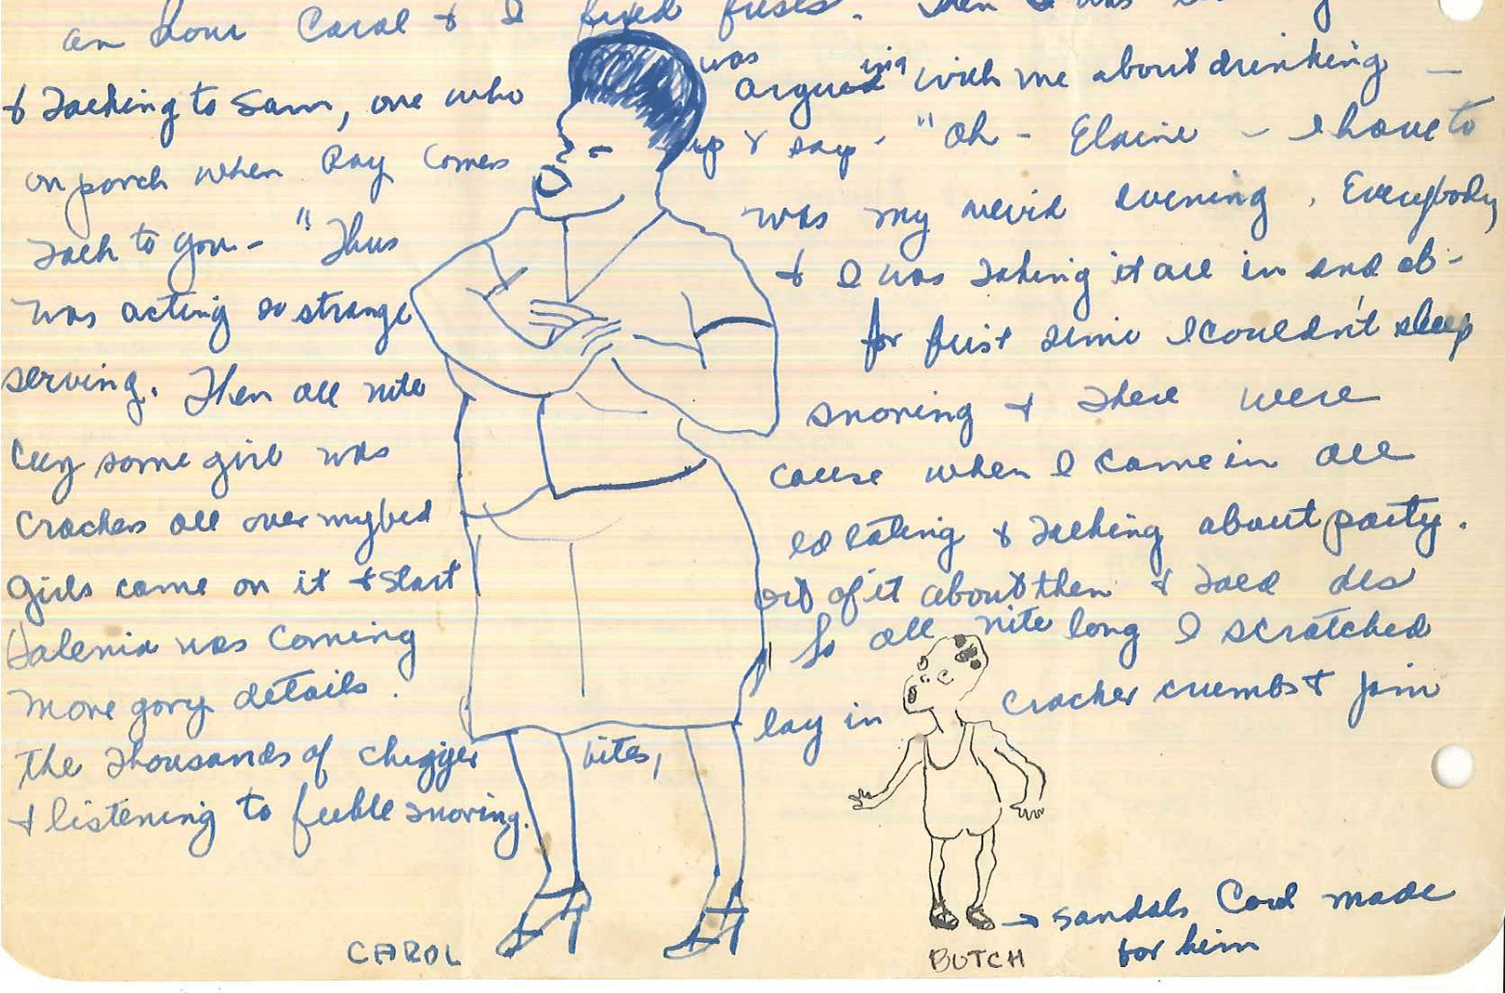 an hour Carol & I fixed fuses. Then I was
& talking to Sam, one who was arguing with me about drinking —
on porch when Ray comes up & say - "Oh - Elaine - I have to
talk to you - " Thus was my weird evening. Everybody
was acting so strange & I was taking it all in and ob-
serving. Then all nite for first time I couldn't sleep
cuz some girl was snoring & there were
crackers all over my bed cause when I came in all
girls came on it & started eating & talking about party.
was coming out of it about then & told
more gory details. So all nite long I scratched
the thousands of chigger bites, lay in cracker crumbs &
& listening to feeble snoring.
CAROL
BUTCH
→ sandals Carol made
for him